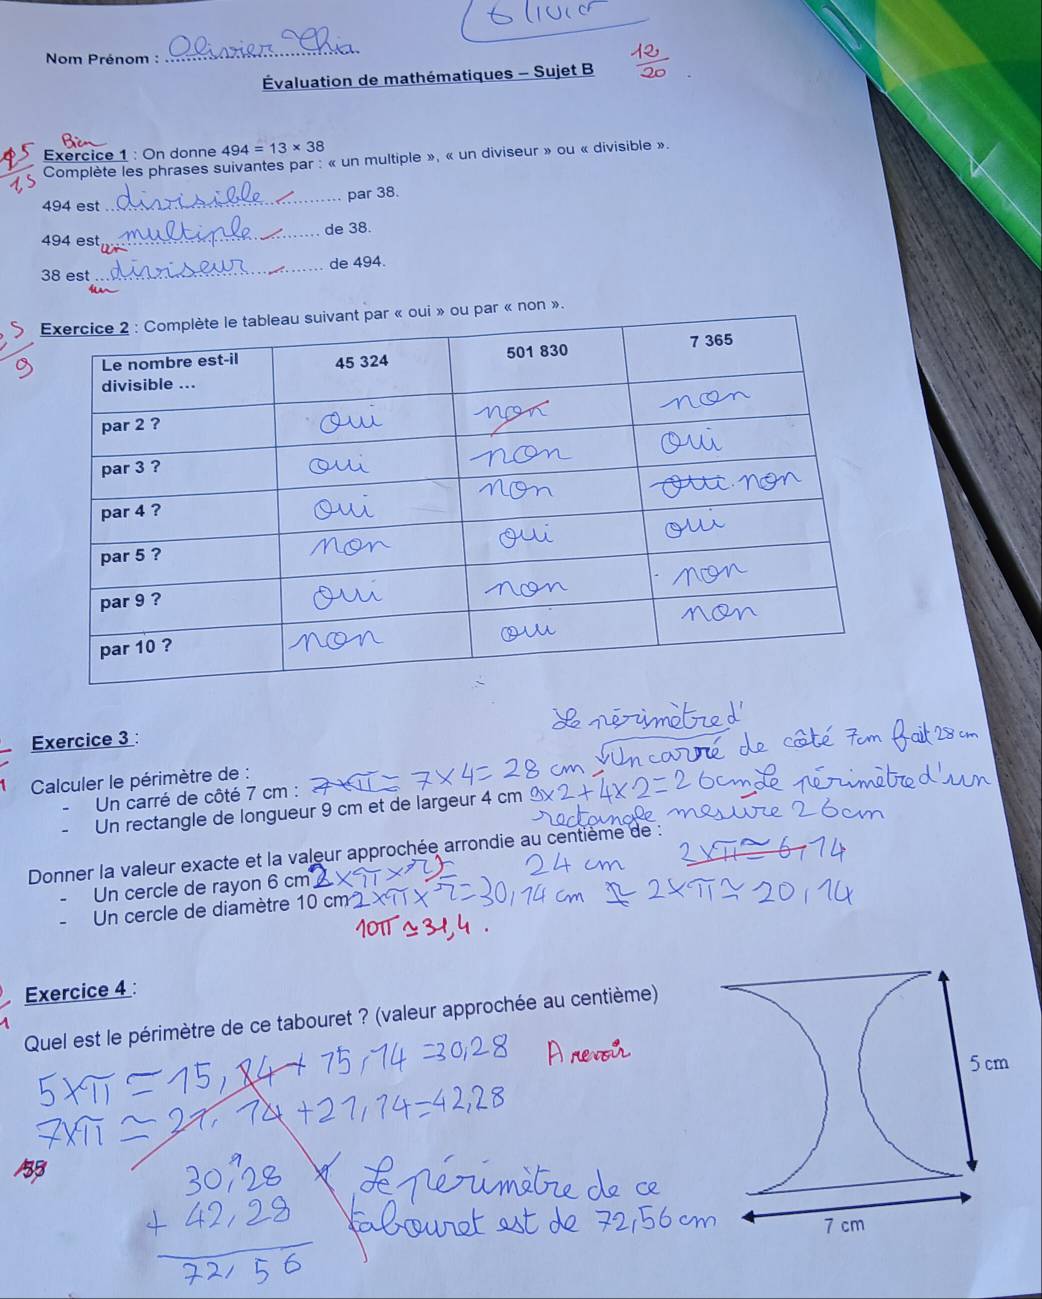 Olivier
Nom Prénom : Olivier Chia
12/20
Évaluation de mathématiques – Sujet B
Bien
Exercice 1 : On donne 494 = 13 × 38
1,5
Complète les phrases suivantes par : « un multiple », « un diviseur » ou « divisible ».
494 est divisible par 38.
494 est un multiple de 38.
38 est un diviseur de 494.
Exercice 2 : Complète le tableau suivant par « oui » ou par « non ».
9
Le nombre est-il divisible ... 45 324 501 830 7 365
par 2 ? oui non non
par 3 ? oui non oui
par 4 ? oui non oui non
par 5 ? non oui oui
par 9 ? oui non non
par 10 ? non oui non
Le périmètre d'
Exercice 3 :
Un carré de côté 7cm fait 28 cm
Calculer le périmètre de :
- Un carré de côté 7 cm : 7×4= 28 cm
- Un rectangle de longueur 9 cm et de largeur 4 cm 9×2+4×2=26cm Le périmètre d'un
rectangle mesure 26cm
Donner la valeur exacte et la valeur approchée arrondie au centième de :
- Un cercle de rayon 6 cm 2×π× 24 cm 2×π≃6,14
- Un cercle de diamètre 10 cm 2×π× =30,14 cm 2×π≃20,14
10π ≃ 31,4.
Exercice 4 :
Quel est le périmètre de ce tabouret ? (valeur approchée au centième)
5×π = 15,14+15,14 =30,28 A revoir
7×π ≃ 21,14+21,14=42,28
5 cm
30,28
+ 42,28
72,56
Le périmètre de ce
tabouret est de 72,56 cm
7 cm